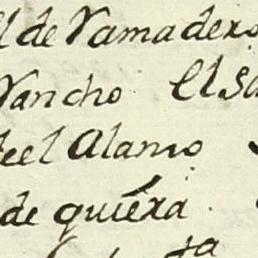 l de Ramadero
Rancho El Sa
de el Alamo
de quiéra
ta